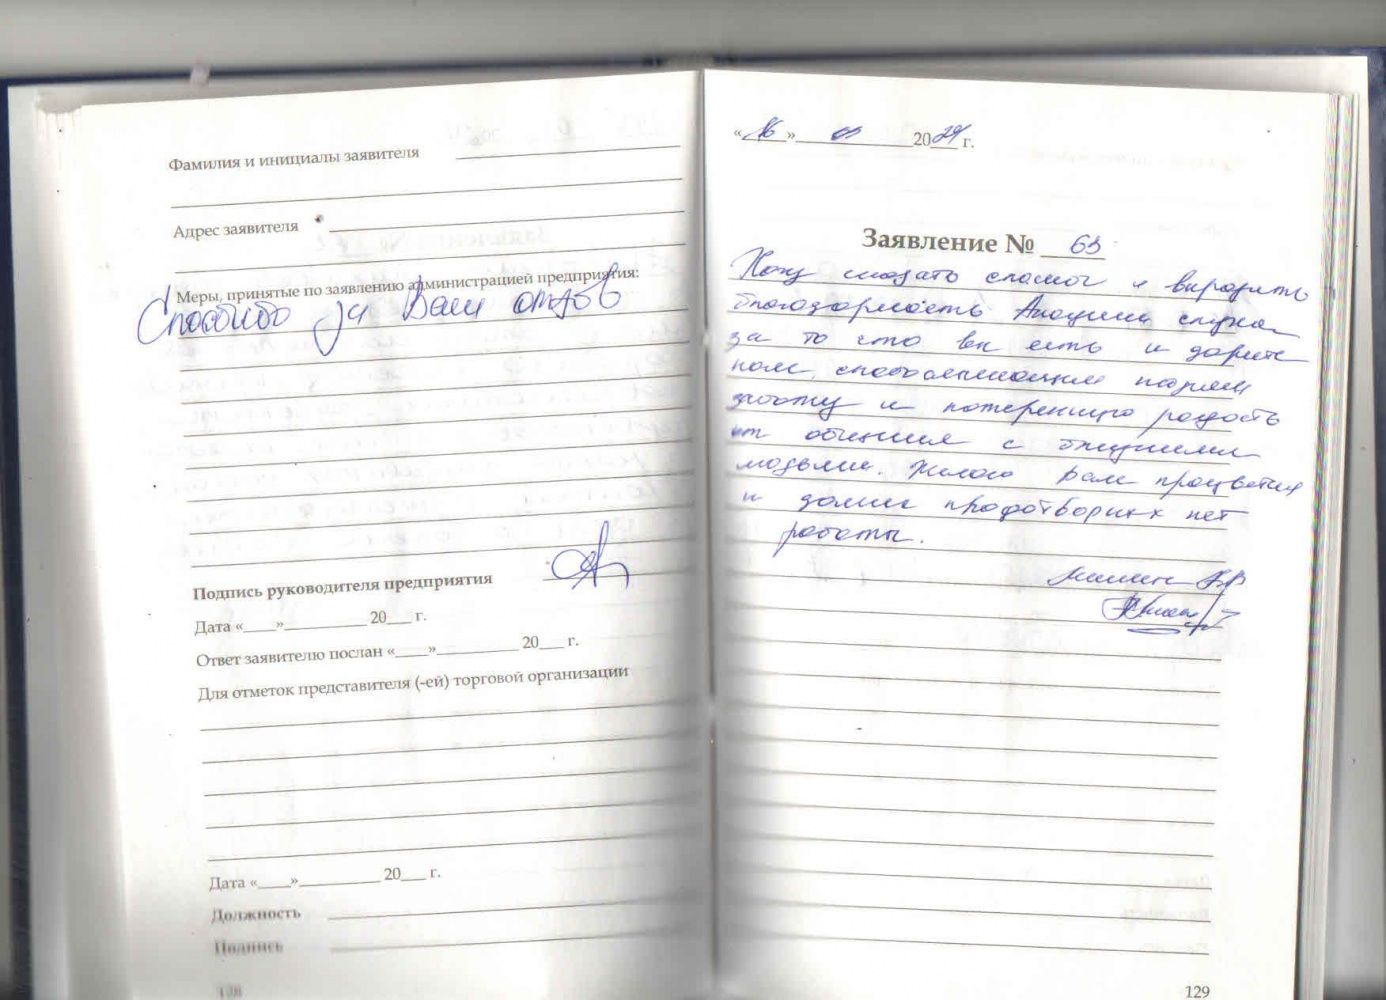 Фамилия и инициалы заявителя
Адрес заявителя
Меры, принятые по заявлению администрацией предприятия:
Спасибо за Ваш отзыв
Подпись руководителя предприятия
Дата «____»__________ 20___ г.
Ответ заявителю послан «____»__________ 20___ г.
Для отметок представителя (-ей) торговой организации
Дата «____»__________ 20___ г.
Должность
Подпись
128
«16» 20 г.
Заявление № 63
Хочу сказать и выразить
благодарность
за то что вы есть и дарите
нам,
заботу и потерянную радость
от общения с близкими
людьми. Желаю Вам процветания
и долгих плодотворных лет
работы.
129